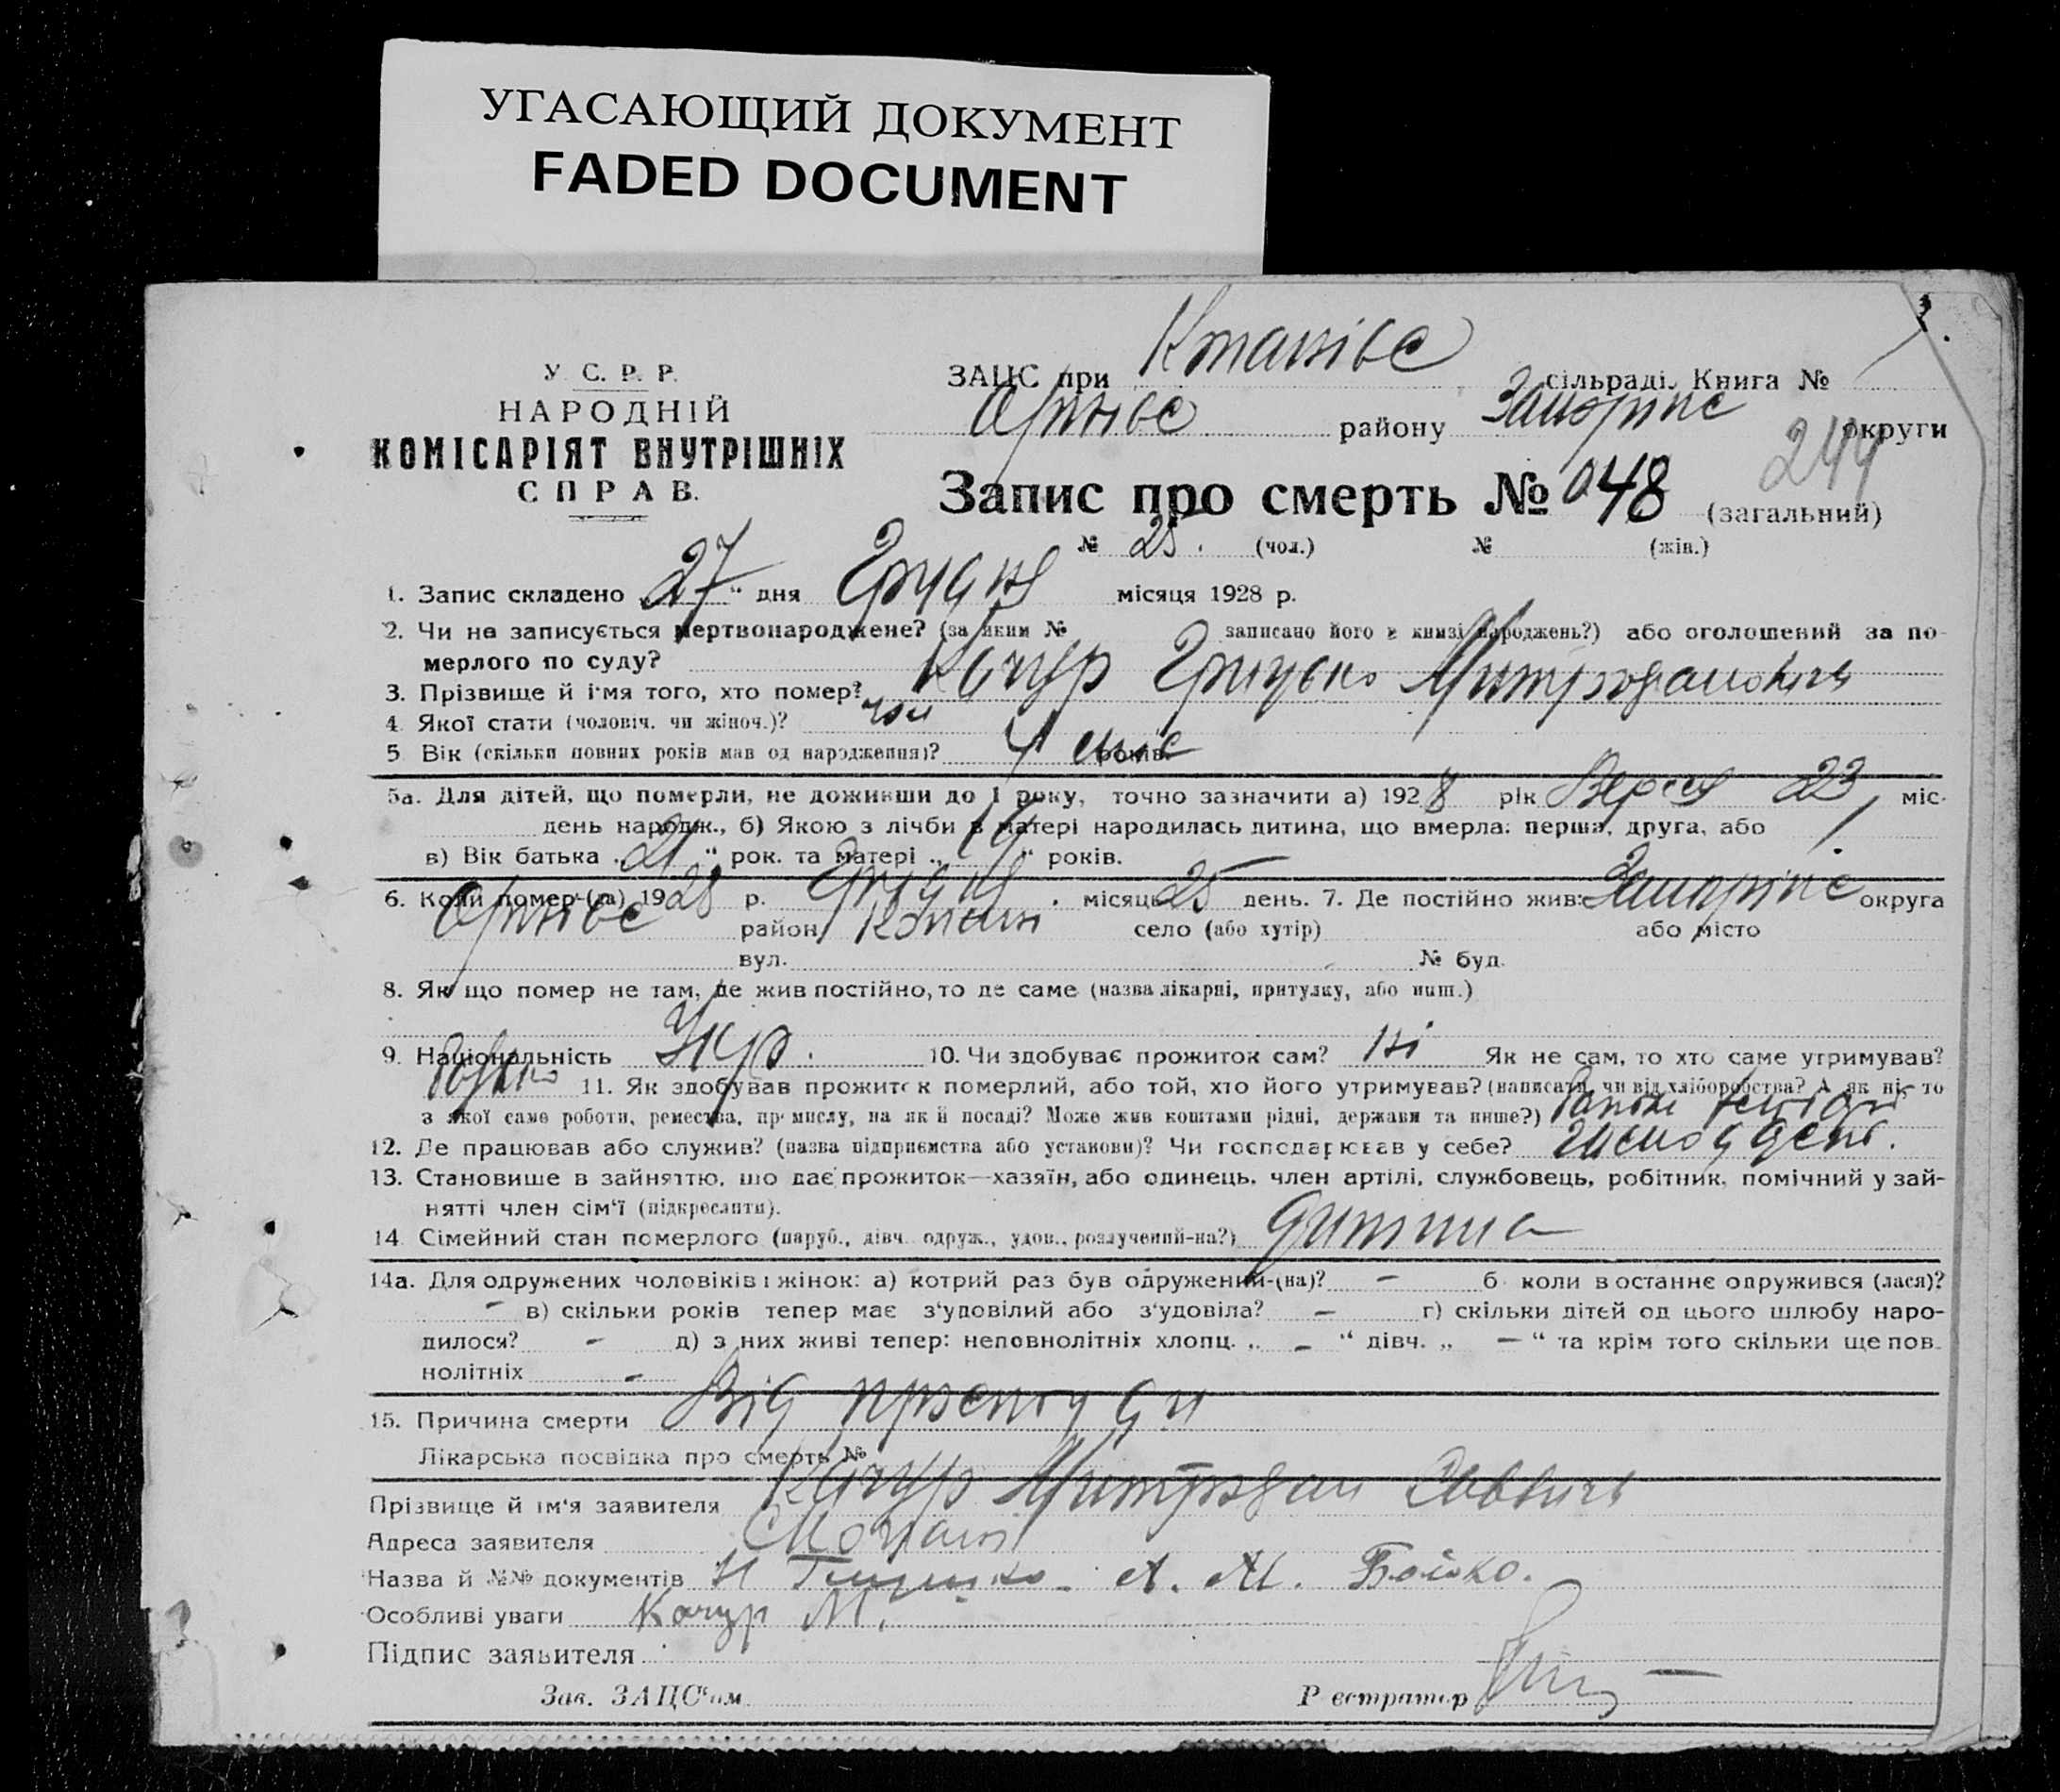 УГАСАЮЩИЙ ДОКУМЕНТ
FADED DOCUMENT
У. С. Р. Р.
НАРОДНІЙ
КОМІСАРІЯТ ВНУТРІШНІХ
СПРАВ.
ЗАЦС при сільраді. Книга №
району округи
244
Запис про смерть № 048 (загальний)
№ 25. (чол.) № (жін.)
1. Запис складено „27“ дня Грудня місяця 1928 р.
2. Чи не записується мертвонароджене? (за яким № записано його в книзі народжень?) або оголошений за по-
мерлого по суду?
3. Прізвище й ім'я того, хто помер? Качур Грицько Митрофанович
4. Якої статі (чоловіч. чи жіноч.)? чол
5. Вік (скільки повних років мав од народження)? років.
5а. Для дітей, що померли, не доживши до 1 року, точно зазначити а) 1928 рік Верес 23 міс.
день народж., б) Якою з лічби в матері народилась дитина, що вмерла: перша, друга, або 1
в) Вік батька „21“ рок. та матері „19“ років.
6. Коли помер (ла) 1928 р. Грудня місяць 25 день. 7. Де постійно жив: округа
район село (або хутір) або місто
вул. № буд.
8. Якщо помер не там, де жив постійно, то де саме (назва лікарні, притулку, або инш.)
9. Національність Укр. 10. Чи здобував прожиток сам? ні Як не сам, то хто саме утримував?
11. Як здобував прожиток померлий, або той, хто його утримував? (написати, чи від хліборобства? А як ні, то
з якої саме роботи, ремества, промислу, на якій посаді? Може жив коштами рідні, держави та инше?)
12. Де працював або служив? (назва підприємства або установи)? Чи господарював у себе?
13. Становище в зайняттю, що дає прожиток—хазяїн, або одинець, член артілі, службовець, робітник, помічний у зай-
нятті член сім'ї (підкреслити).
14. Сімейний стан померлого (паруб., дівч. одруж., удов., розлучений-на?) дитина
14а. Для одружених чоловіків і жінок: а) котрий раз був одружений-(на)? – б) коли востаннє одружився (лася)?
– в) скільки років тепер має з'удовілий або з'удовіла? – г) скільки дітей од цього шлюбу наро-
дилося? – д) з них живі тепер: неповнолітніх хлопц. „–“ дівч. „–“ та крім того скільки ще пов-
нолітніх –
15. Причина смерти Від простуди
Лікарська посвідка про смерть №
Прізвище й ім'я заявителя Качур Митрофан Саввич
Адреса заявителя
Назва й №№ документів А. М. Бойко.
Особливі уваги Качур М.
Підпис заявителя
Зав. ЗАЦС'ом Реєстратор